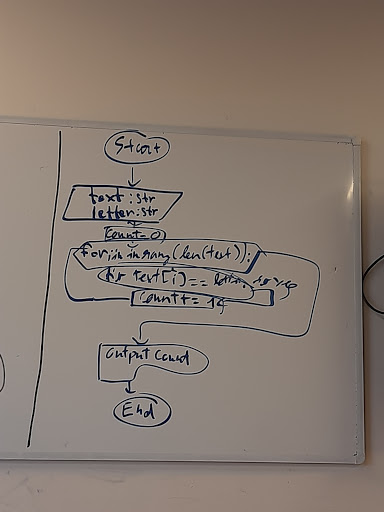 Start
text :str
letter:str
count=0
for i in rang(len(text)):
text[i]==
count += 1
output Count
End